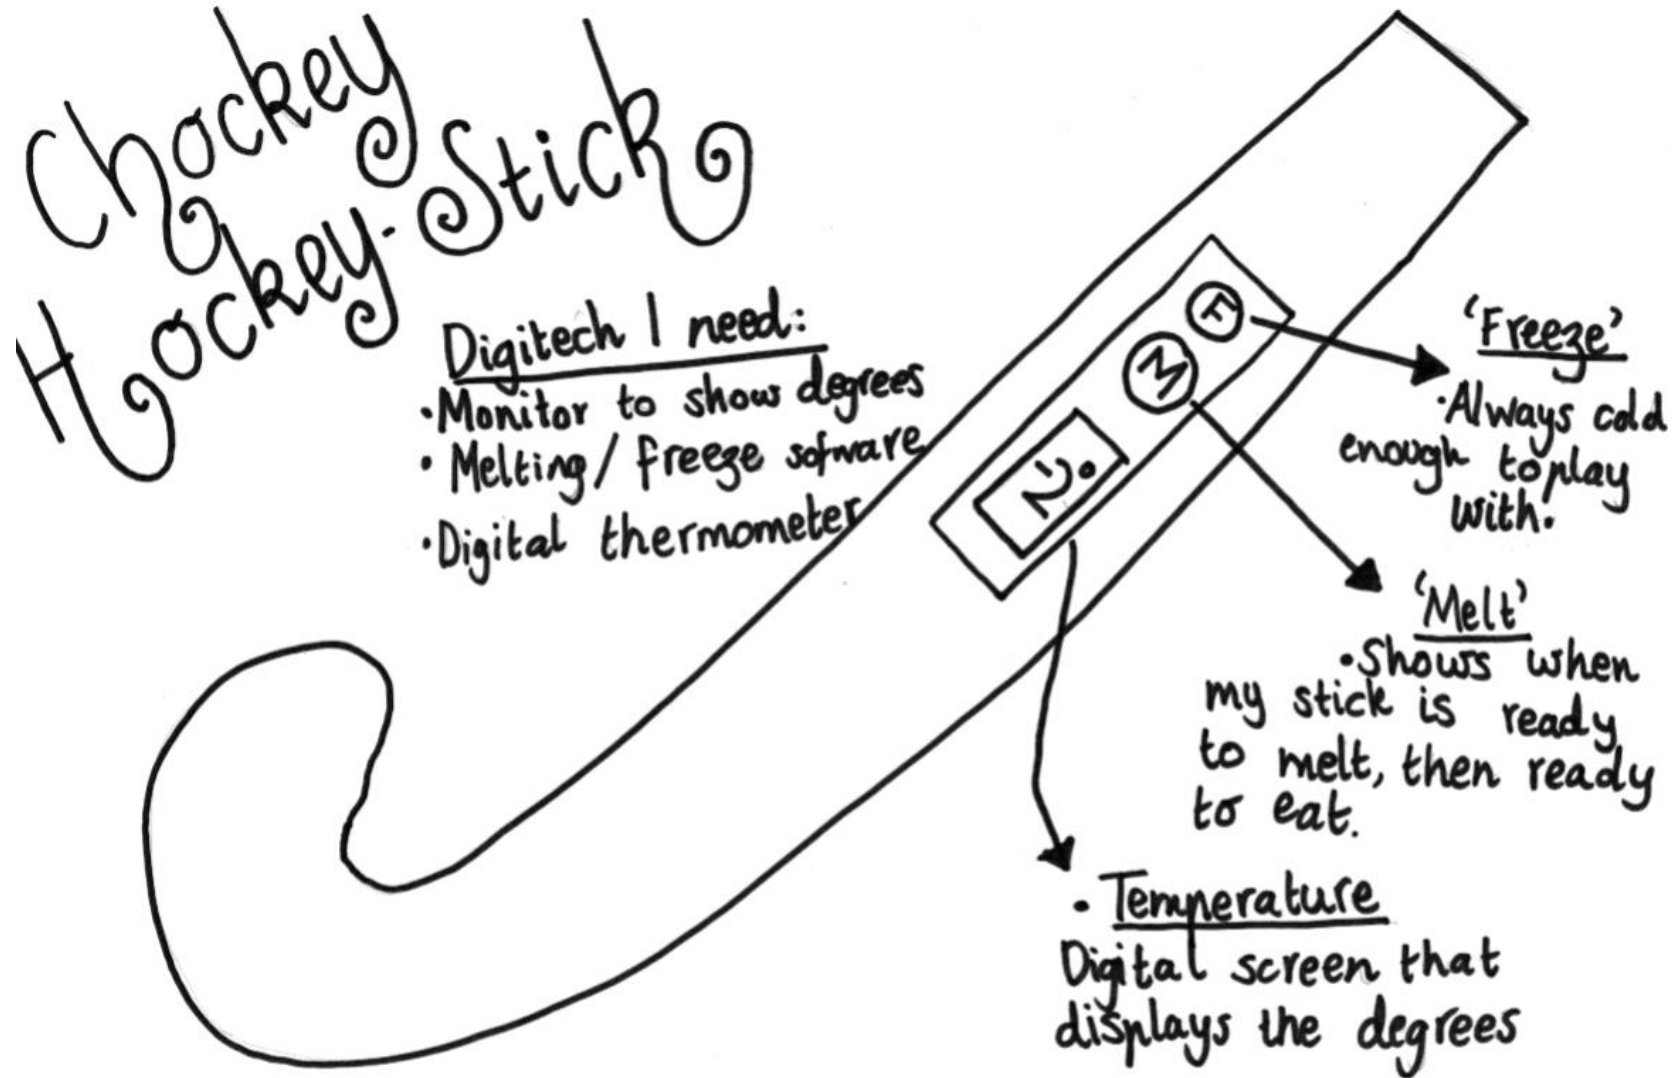 Chockey
Hockey-Stick
Digitech I need:
•Monitor to show degrees
• Melting/freeze sofware
•Digital thermometer
F
M
2°
'Freeze'
•Always cold
enough to play
with.
'Melt'
•Shows when
my stick is ready
to melt, then ready
to eat.
• Temperature
Digital screen that
displays the degrees